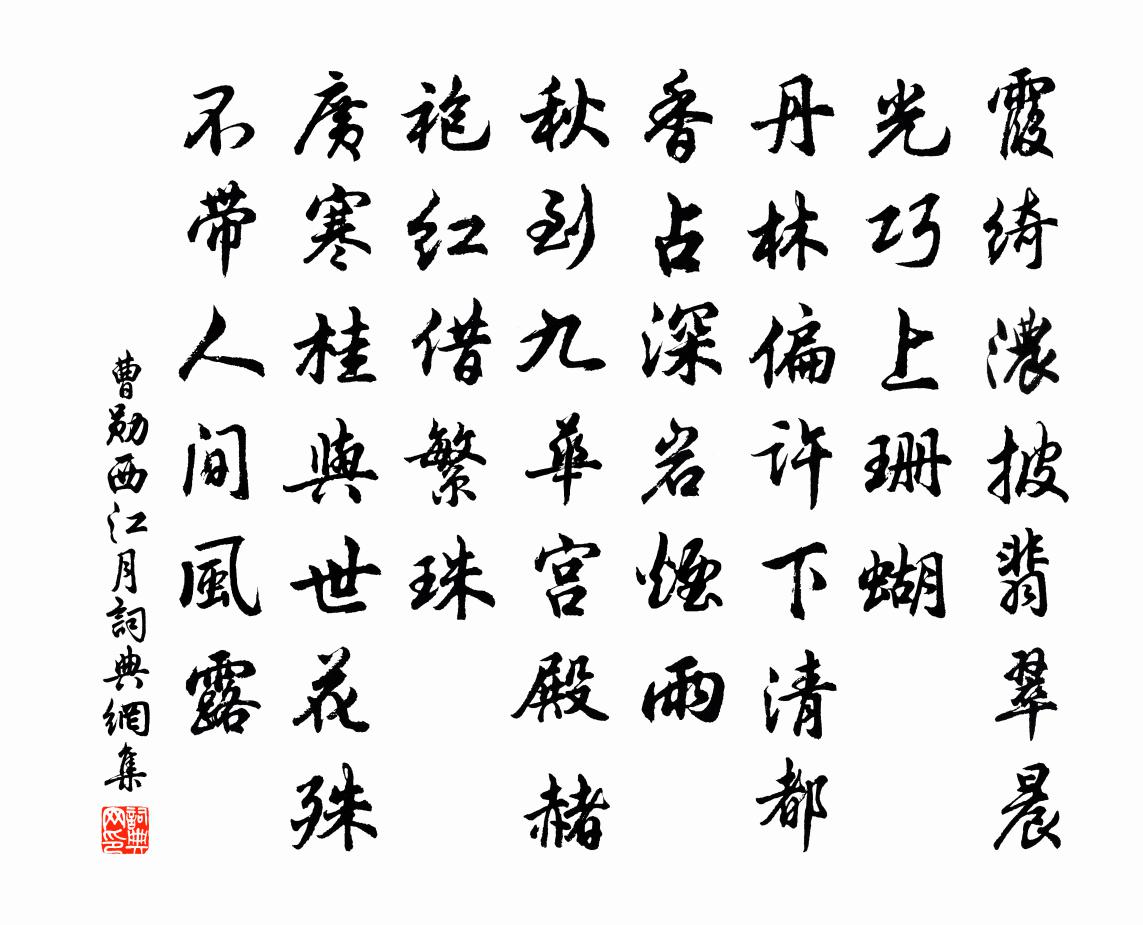 霞綺濃披翡翠晨
光巧上珊蝴
丹林偏许下清都
香占深岩煙雨
秋到九華宫殿赭
袍红借繁珠
廣寒桂與世花殊
不带人间風露
曹勋西江月詞典網集
詞典网印